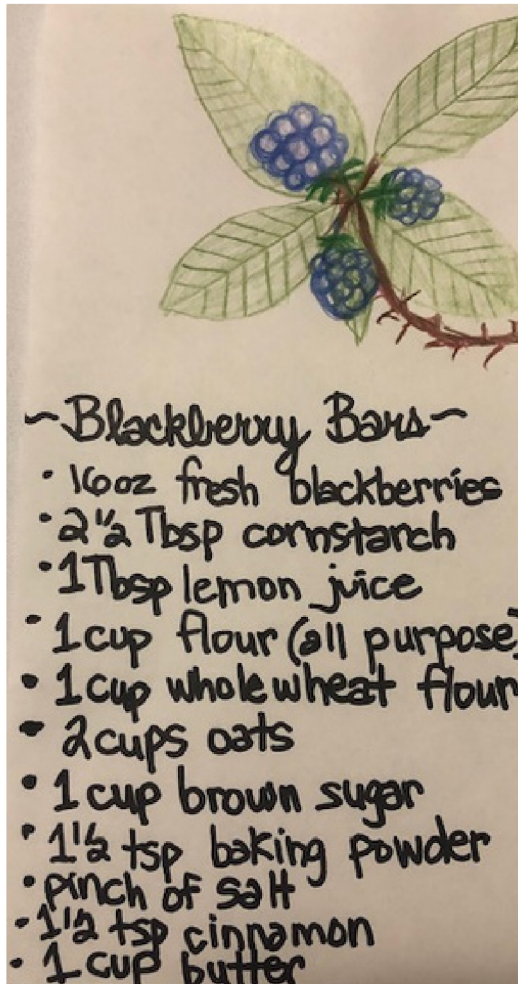 ~Blackberry Bars~
• 16oz fresh blackberries
• 2 1/2 Tbsp cornstarch
• 1 Tbsp lemon juice
• 1 cup flour (all purpose)
• 1 cup whole wheat flour
• 2 cups oats
• 1 cup brown sugar
• 1 1/2 tsp baking powder
• pinch of salt
• 1 1/2 tsp cinnamon
• 1 cup butter